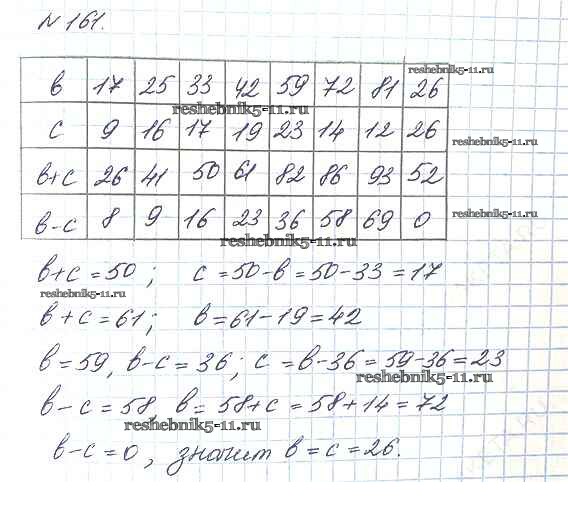 № 161.
в 17 25 33 42 59 72 81 26
reshebnik5-11.ru
reshebnik5-11.ru
с 9 16 17 19 23 14 12 26
reshebnik5-11.ru
в+с 26 41 50 61 82 86 93 52
в-с 8 9 16 23 36 58 69 0
reshebnik5-11.ru
reshebnik5-11.ru
в+с=50; с=50-в=50-33=17
reshebnik5-11.ru
в+с=61; в=61-19=42
в=59, в-с=36; с=в-36=59-36=23
reshebnik5-11.ru
в-с=58, в=58+с=58+14=72
reshebnik5-11.ru
в-с=0, значит в=с=26.